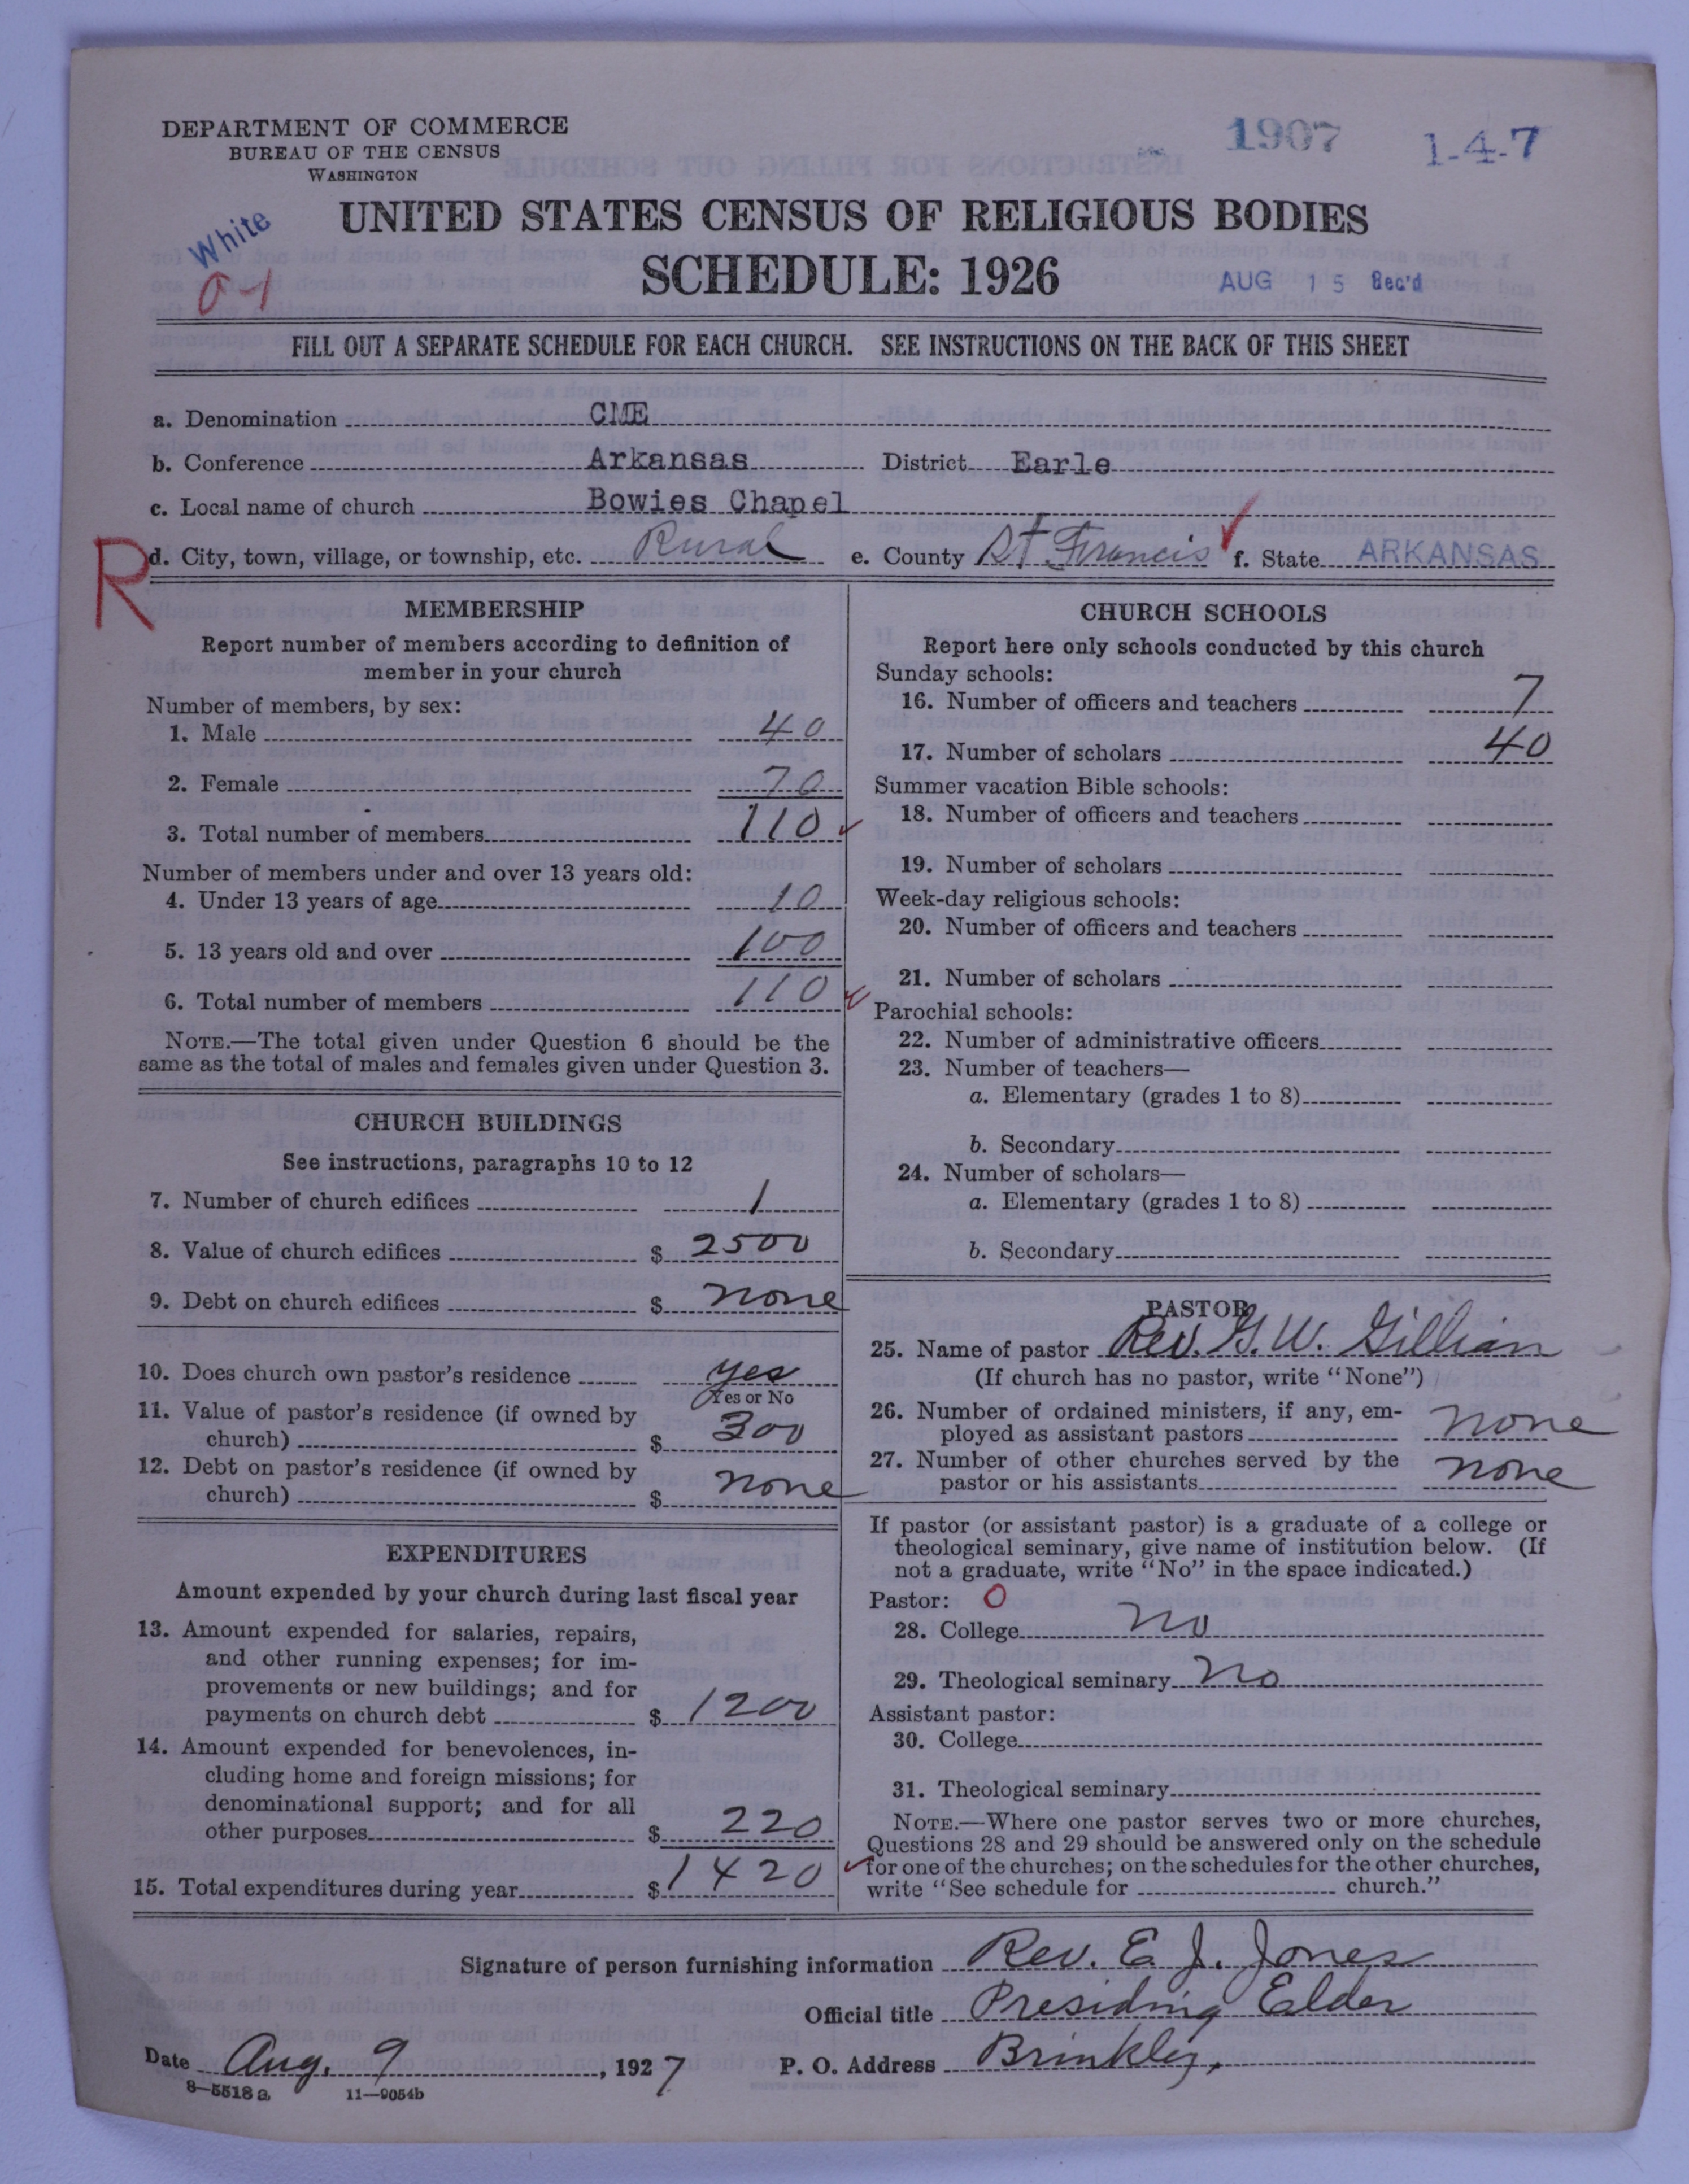 DEPARTMENT OF COMMERCE
BUREAU OF THE CENSUS
WASHINGTON
1907
1-4-7
White
0-1
UNITED STATES CENSUS OF RELIGIOUS BODIES
SCHEDULE: 1926
AUG 15 Rec'd
FILL OUT A SEPARATE SCHEDULE FOR EACH CHURCH. SEE INSTRUCTIONS ON THE BACK OF THIS SHEET
a. Denomination CME
b. Conference Arkansas District Earle
c. Local name of church Bowies Chapel
R
d. City, town, village, or township, etc. Rural e. County St. Francis f. State ARKANSAS
MEMBERSHIP
Report number of members according to definition of
member in your church
Number of members, by sex:
1. Male 40
2. Female 70
3. Total number of members 110
Number of members under and over 13 years old:
4. Under 13 years of age 10
5. 13 years old and over 100
6. Total number of members 110
NOTE.—The total given under Question 6 should be the
same as the total of males and females given under Question 3.
CHURCH BUILDINGS
See instructions, paragraphs 10 to 12
7. Number of church edifices 1
8. Value of church edifices $ 2500
9. Debt on church edifices $ none
10. Does church own pastor's residence yes
Yes or No
11. Value of pastor's residence (if owned by
church) $ 300
12. Debt on pastor's residence (if owned by
church) $ none
EXPENDITURES
Amount expended by your church during last fiscal year
13. Amount expended for salaries, repairs,
and other running expenses; for im-
provements or new buildings; and for
payments on church debt $ 1200
14. Amount expended for benevolences, in-
cluding home and foreign missions; for
denominational support; and for all
other purposes $ 220
15. Total expenditures during year $ 1420
CHURCH SCHOOLS
Report here only schools conducted by this church
Sunday schools:
16. Number of officers and teachers 7
17. Number of scholars 40
Summer vacation Bible schools:
18. Number of officers and teachers
19. Number of scholars
Week-day religious schools:
20. Number of officers and teachers
21. Number of scholars
Parochial schools:
22. Number of administrative officers
23. Number of teachers—
a. Elementary (grades 1 to 8)
b. Secondary
24. Number of scholars—
a. Elementary (grades 1 to 8)
b. Secondary
PASTOR
25. Name of pastor Rev. G. W. Gillian
(If church has no pastor, write "None")
26. Number of ordained ministers, if any, em-
ployed as assistant pastors none
27. Number of other churches served by the
pastor or his assistants none
If pastor (or assistant pastor) is a graduate of a college or
theological seminary, give name of institution below. (If
not a graduate, write "No" in the space indicated.)
Pastor: 0
28. College no
29. Theological seminary no
Assistant pastor:
30. College
31. Theological seminary
NOTE.—Where one pastor serves two or more churches,
Questions 28 and 29 should be answered only on the schedule
for one of the churches; on the schedules for the other churches,
write "See schedule for church."
Signature of person furnishing information Rev. E. J. Jones
Official title Presiding Elder
Date Aug. 9, 1927 P. O. Address Brinkley,
8—5518 a 11—9054b